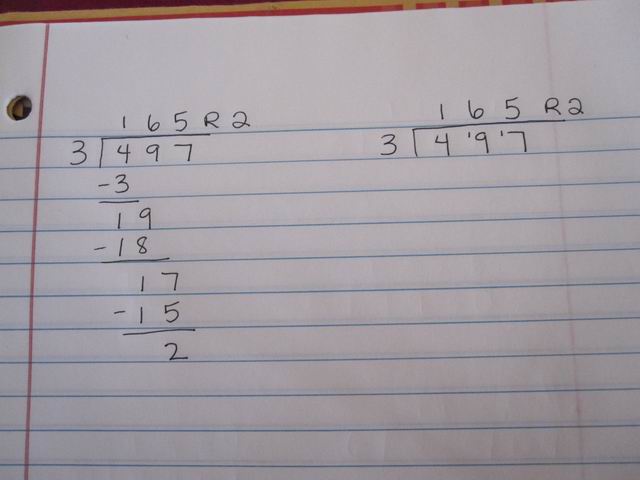 1 6 5 R 2
3 4 9 7
-3
1 9
-1 8
1 7
-1 5
2
1 6 5 R 2
3 4 '9 '7